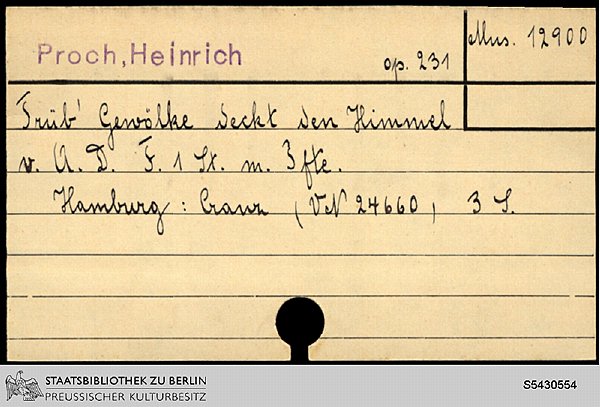 Proch, Heinrich
op. 231
Mus. 12900
Trüb' Gewölke deckt den Himmel
v. A. D. F. 1 St. m. Pfte.
Hamburg: Cranz (VN 24660) 3 S.
STAATSBIBLIOTHEK ZU BERLIN
PREUSSISCHER KULTURBESITZ
S5430554